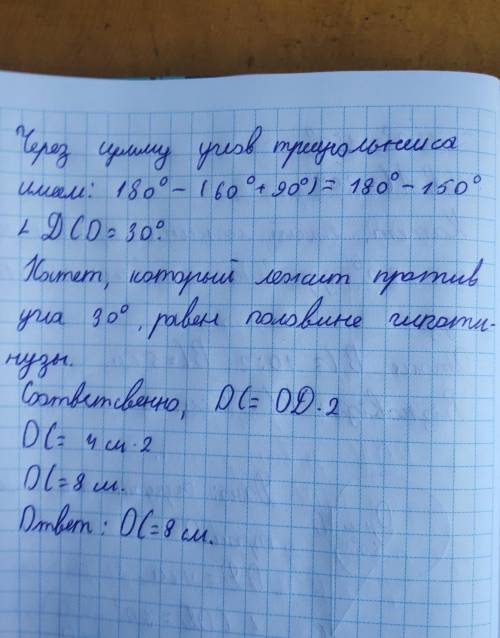 Через сумму углов треугольника
имеем: 180° - (60° + 90°) = 180° - 150°
∠ DCO = 30°.
Катет, который лежит против
угла 30°, равен половине гипоти-
нузы.
Соответсвенно, OC = OD · 2
OC = 4 см · 2
OC = 8 см.
Ответ: OC = 8 см.